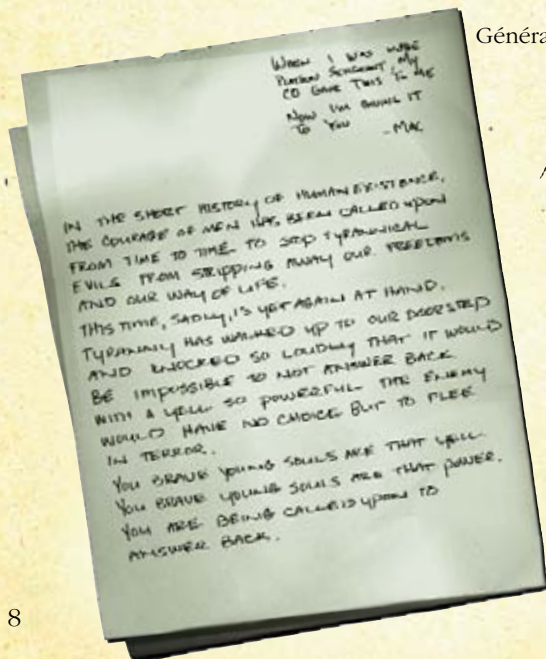 Généra
WHEN I WAS MADE
PLATOON SERGEANT, MY
CO GAVE THIS TO ME
NOW I'M GIVING IT
TO YOU -MAC
A
IN THE SHORT HISTORY OF HUMAN EXISTENCE,
THE COURAGE OF MEN HAS BEEN CALLED UPON
FROM TIME TO TIME TO STOP TYRANNICAL
EVILS FROM STRIPPING AWAY OUR FREEDOMS
AND OUR WAY OF LIFE.
THIS TIME, SADLY, IS YET AGAIN AT HAND.
TYRANNY HAS WALKED UP TO OUR DOORSTEP
AND KNOCKED SO LOUDLY THAT IT WOULD
BE IMPOSSIBLE TO NOT ANSWER BACK
WITH A YELL SO POWERFUL THE ENEMY
WOULD HAVE NO CHOICE BUT TO FLEE
IN TERROR.
YOU BRAVE YOUNG SOULS ARE THAT YELL.
YOU BRAVE YOUNG SOULS ARE THAT POWER.
YOU ARE BEING CALLED UPON TO
ANSWER BACK.
8